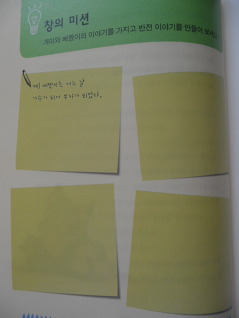 창의 미션
개미와 베짱이의 이야기를 가지고 반전 이야기를 만들어 보세요
예) 베짱이는 어느 날
가수가 되어 부자가 되었다.